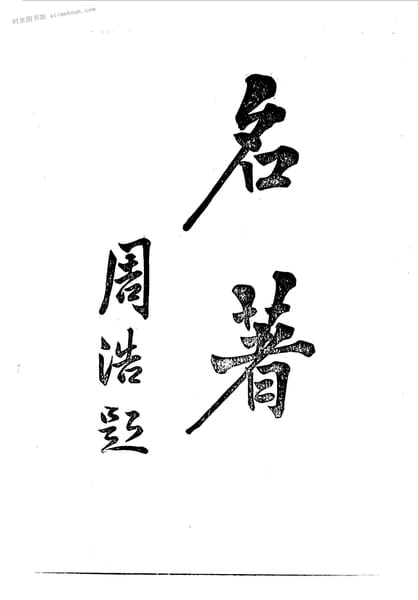 时光图书馆 atimebook.com
名著
周浩题